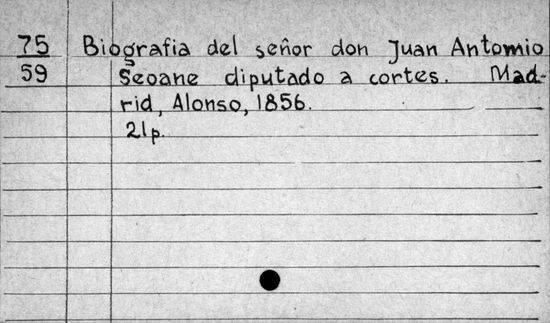 75 Biografia del señor don Juan Antomio
59 Seoane diputado a cortes. Mad-
rid, Alonso, 1856.
21p.